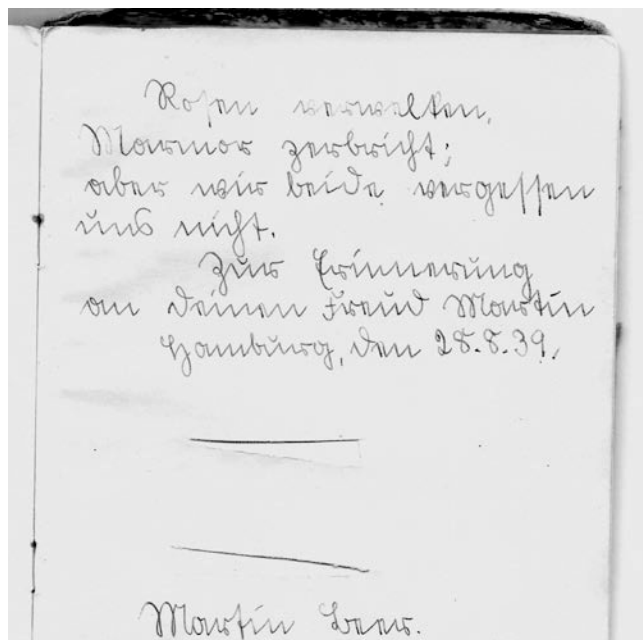 Rosen verwelken,
Marmor zerbricht;
aber wir beide vergessen
uns nicht.
Zur Erinnerung
an deinen Freud Martin
Hamburg, den 28.8.39.
Martin Beer.